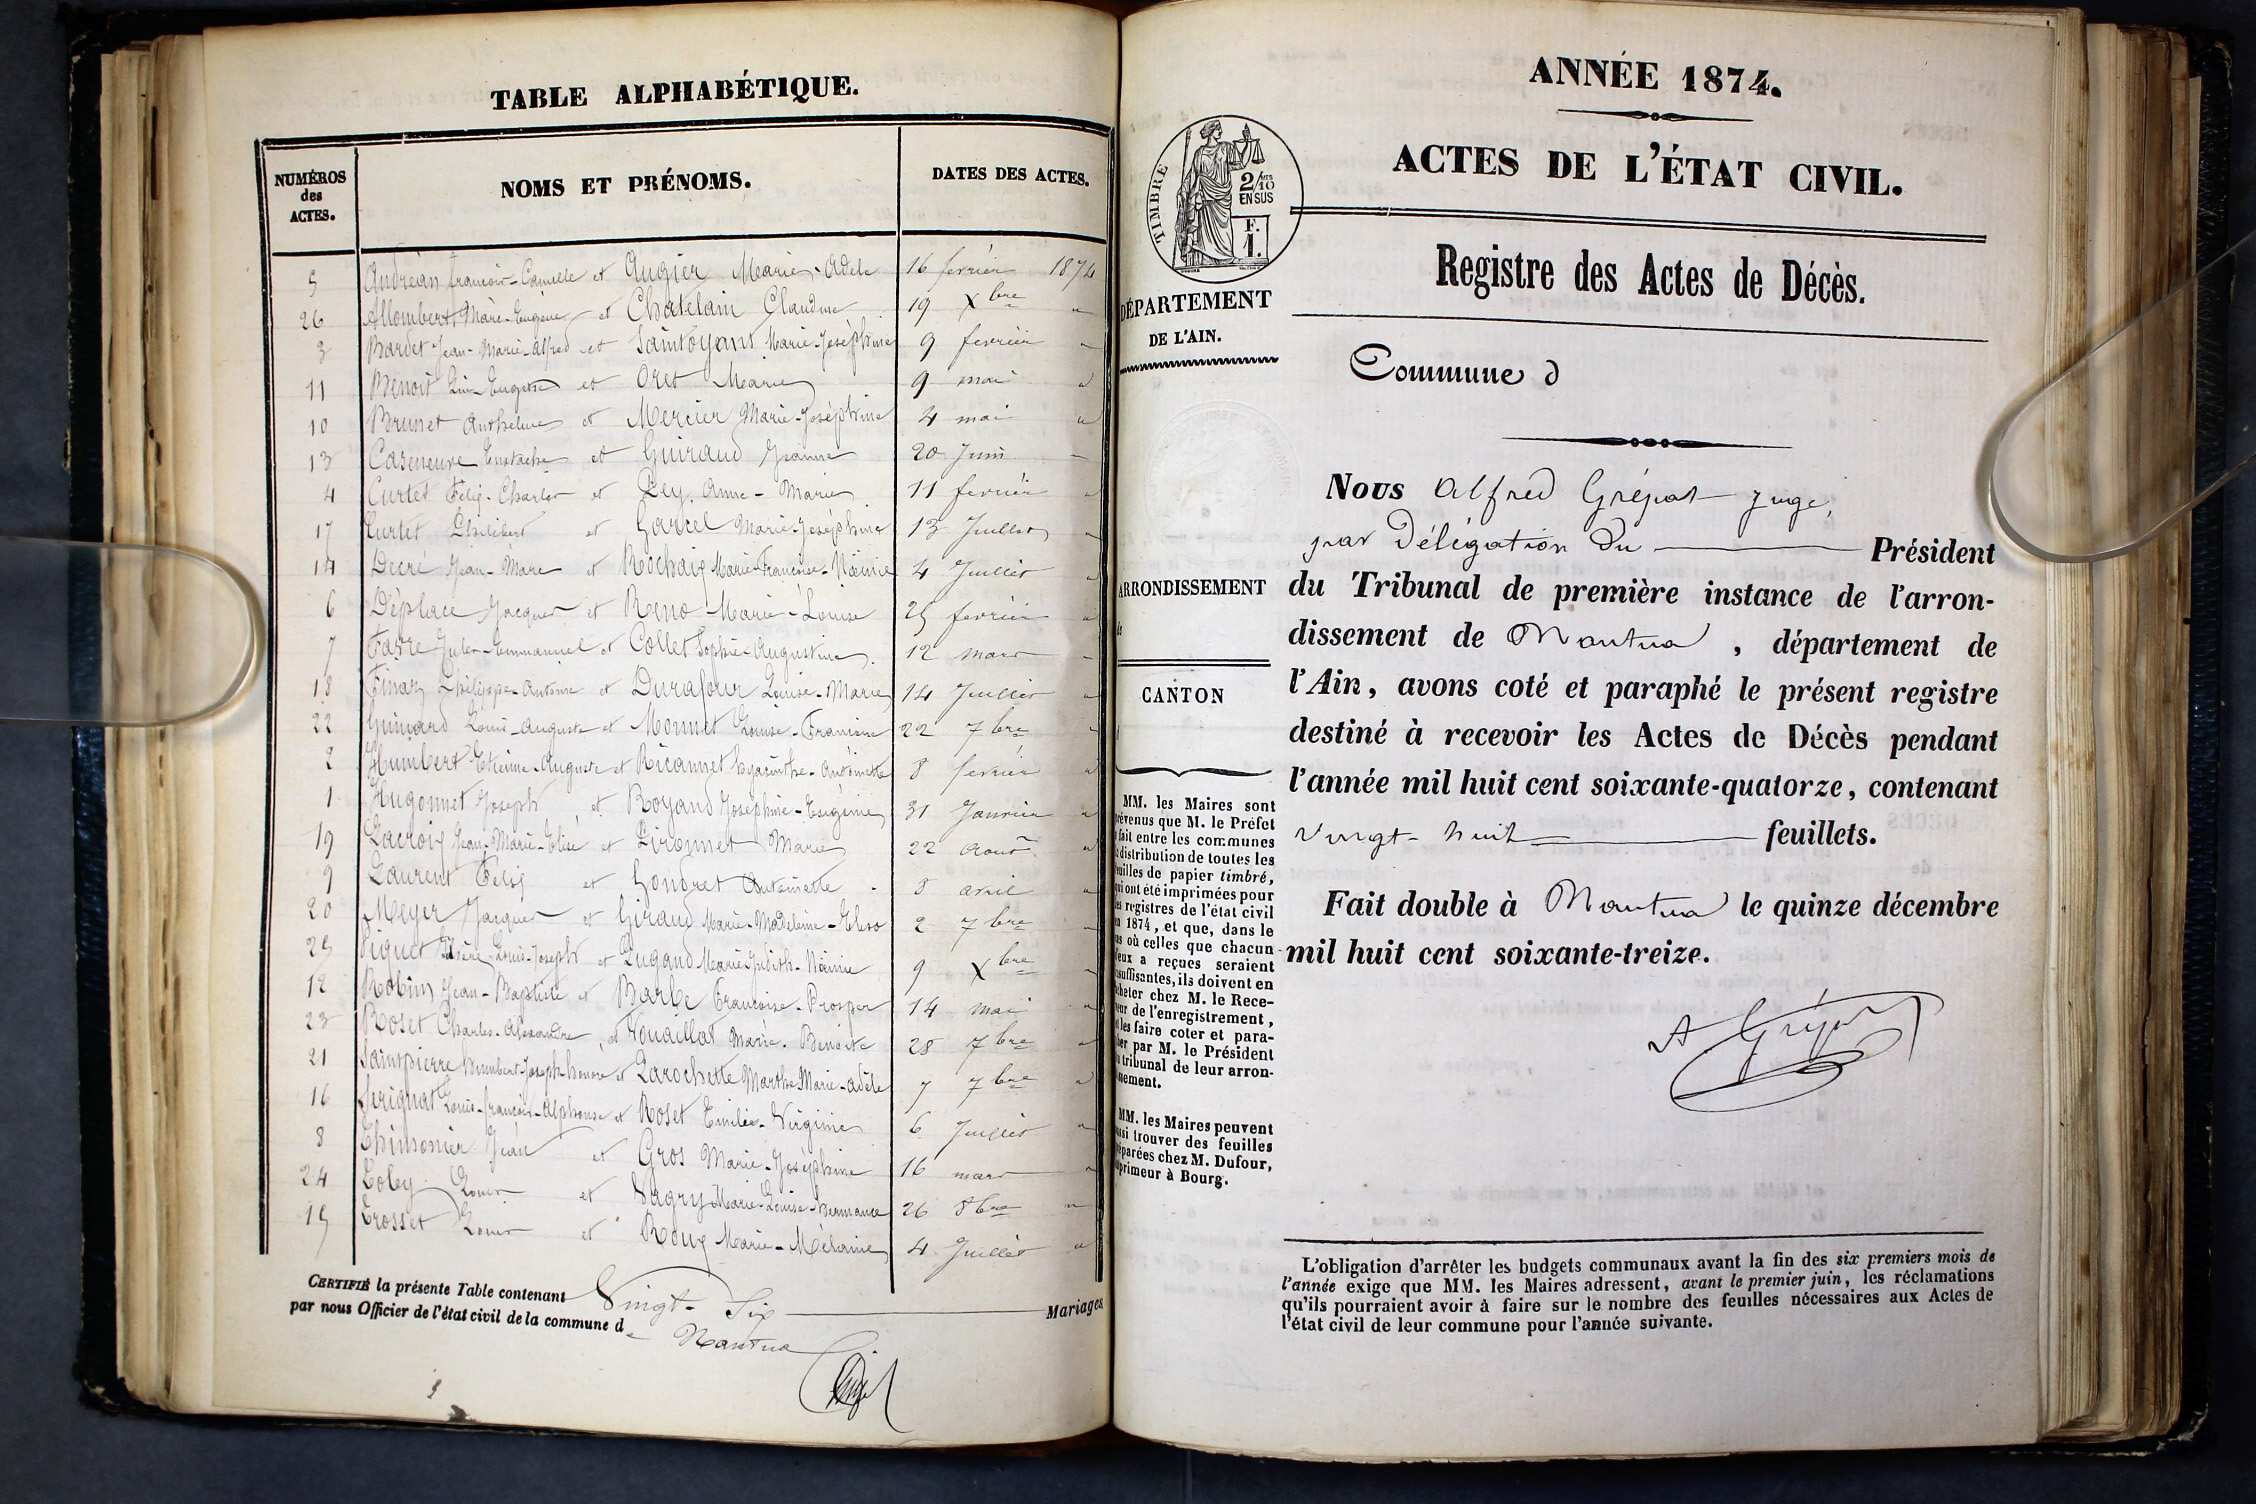 TABLE ALPHABÉTIQUE.
NUMÉROS
des
ACTES.
NOMS ET PRÉNOMS.
DATES DES ACTES.
5 Andréan François-Camille et Augier Marie-Adèle 16 février 1874
26 Allombert Marie-Eugène et Chatelain Claudine 19 Xbre "
3 Bardet Jean-Marie-Alfred et Saintoyant Marie-Joséphine 9 février "
11 Benoit et Oret Marie 9 mai "
10 Brunet Anthelme et Mercier Marie-Joséphine 4 mai "
13 Caseneuve Eustache et Guiraud Jeanne 20 Juin "
4 Curtet Félix-Charles et Rey Anne-Marie 11 février "
17 Curtet Philibert et Marie-Joséphine 13 Juillet "
14 Decré Jean-Marc et Rochaix Marie-Françoise-Noémie 4 Juillet "
6 Déplace Jacques et Reno Marie-Louise 25 février "
7 Favre Jules-Emmanuel et Collet Sophie-Augustine 12 mars "
18 Finaz Philippe-Antoine et Durafour Louise-Marie 14 Juillet "
22 Guinard Louis-Auguste et Monnet Louise-Francine 22 7bre "
2 Humbert Etienne-Auguste et Ricannet Hyacinthe-Antoinette 8 février "
1 Hugonnet Joseph et Royand Joséphine-Eugénie 31 Janvier "
19 Lacroix Jean-Marie-Elisé et Pironnet Marie 22 Aout "
9 Laurent Félix et Gondret Antoinette 8 avril "
20 Meyer Jacques et Giraud Marie-Madeleine-Elisa 2 7bre "
25 Piguet Louis-Joseph et Pugand Marie-Judith-Noémie 9 Xbre "
12 Robin Jean-Baptiste et Barbe Françoise-Prosper 14 mai "
23 Roset Charles-Alexandre, et Touaillat Marie-Benoite 28 7bre "
21 Saintpierre Humbert-Joseph-honore et Larochette Marthe Marie-Adèle 7 7bre "
16 Serignat Louis-François-Alphonse et Roset Emilie-Virginie 6 Juillet "
8 Thimonier Jean et Gros Marie-Josephine 16 mars "
24 Toley Louis et Vagry Marie-Louise-Hermance 26 8bre "
15 Trosset Louis et Roux Marie-Mélanie 4 Juillet "
CERTIFIÉ la présente Table contenant Vingt-Six Mariages
par nous Officier de l'état civil de la commune de Nantua
ANNÉE 1874.
ACTES DE L'ÉTAT CIVIL.
TIMBRE
2/10
EN SUS
F.
1.
DÉPARTEMENT
DE L'AIN.
ARRONDISSEMENT
de
CANTON
d
MM. les Maires sont
prévenus que M. le Préfet
a fait entre les communes
la distribution de toutes les
feuilles de papier timbré,
qui ont été imprimées pour
les registres de l'état civil
en 1874, et que, dans le
cas où celles que chacun
d'eux a reçues seraient
insuffisantes, ils doivent en
acheter chez M. le Rece-
veur de l'enregistrement,
et les faire coter et para-
pher par M. le Président
du tribunal de leur arron-
dissement.
MM. les Maires peuvent
aussi trouver des feuilles
préparées chez M. Dufour,
imprimeur à Bourg.
Registre des Actes de Décès.
Commune d
Nous Alfred Grépat juge,
par Délégation du Président
du Tribunal de première instance de l'arron-
dissement de Nantua, département de
l'Ain, avons coté et paraphé le présent registre
destiné à recevoir les Actes de Décès pendant
l'année mil huit cent soixante-quatorze, contenant
vingt-huit feuillets.
Fait double à Nantua le quinze décembre
mil huit cent soixante-treize.
A Grépat
L'obligation d'arrêter les budgets communaux avant la fin des six premiers mois de
l'année exige que MM. les Maires adressent, avant le premier juin, les réclamations
qu'ils pourraient avoir à faire sur le nombre des feuilles nécessaires aux Actes de
l'état civil de leur commune pour l'année suivante.